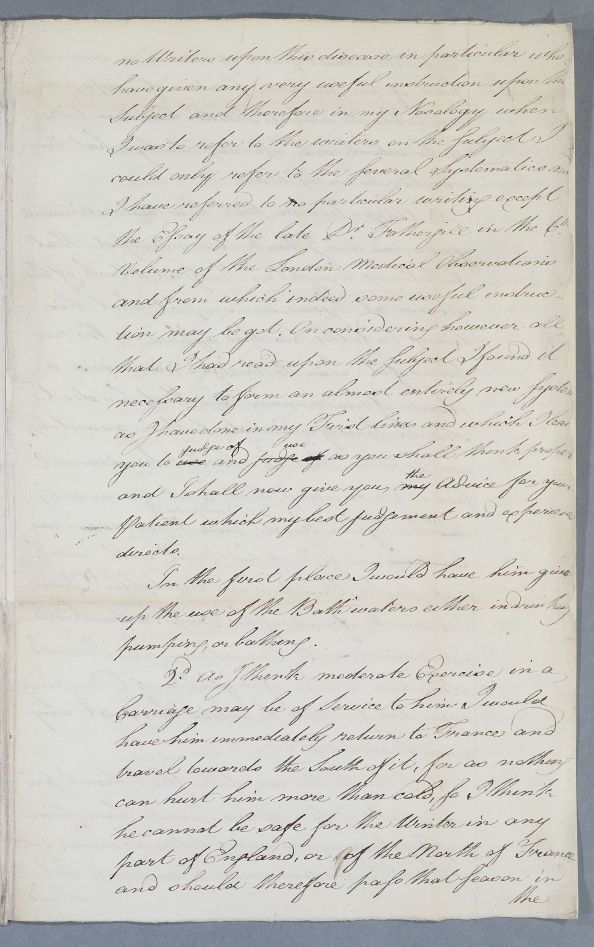 no Writers upon this disease in particular who
have given any very useful instruction upon the
Subject and therefore in my Nosology when
I was to refer to the writers on the Subject I
could only refer to the several Systematics
I have referred to no particular writing except
the Essay of the late Dr. Fothergile in the 6th
Volume of the London Medical Observations
and from which indeed some useful instruc-
tion may be got. On considering however all
that I had read upon the Subject I found it
necessary to form an almost entirely new System
as I have done in my First lines and which I leave
judge of use
you to use and judge of as you shall think proper
the
and I shall now give you my Advice for your
Patient which my best judgement and experience
directs.
In the first place I would have him give
up the use of the Bath waters either in drinking
pumping, or bathing.
2d. As I think moderate Exercise in a
Carriage may be of Service to him I would
have him immediately return to France and
travel towards the South of it, for as nothing
can hurt him more than cold, so I think
he cannot be safe for the Winter in any
part of England, or of the North of France
and should therefore pass that Season in
the